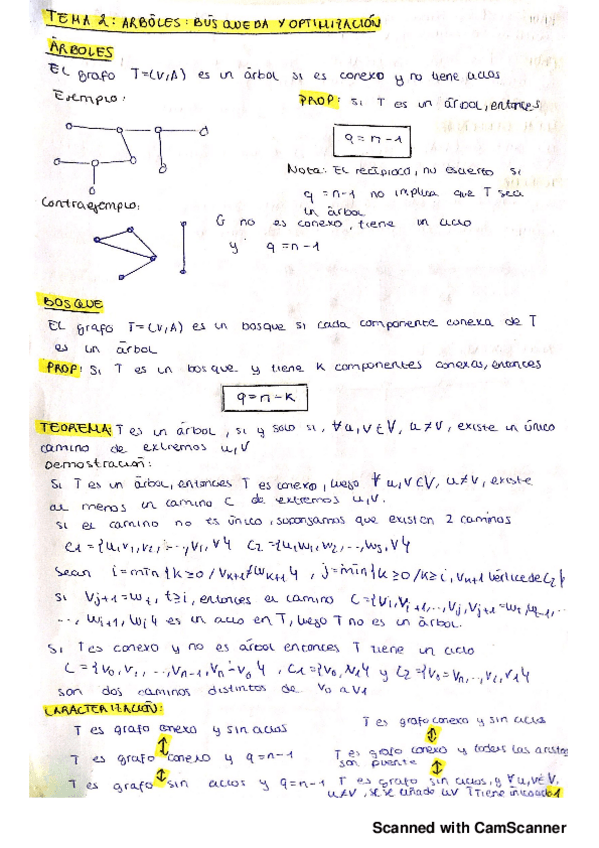 TEMA 2: ARBÓLES: BÚSQUEDA Y OPTIMIZACIÓN
ÁRBOLES
EL grafo T=(V,A) es un árbol si es conexo y no tiene ciclos
Exemplo:
PROP: Si T es un árbol, entonces
q = n - 1
Nota: El recíproco, no es cierto si
q = n-1 no implica que T sea
un árbol
Contraejemplo:
G no es conexo, tiene un ciclo
y q = n-1
BOSQUE
EL grafo T=(V,A) es un bosque si cada componente conexa de T
es un árbol
PROP: Si T es un bosque y tiene K componentes conexas, entonces
q = n - K
TEOREMA: T es un árbol, si y solo si, ∀u,v∈V, u≠v, existe un único
camino de extremos u,v
Demostración:
Si T es un árbol, entonces T es conexo, luego ∀ u,v∈V, u≠v, existe
al menos un camino C de extremos u,v.
si el camino no es único, supongamos que existen 2 caminos
C1={u,v1,v2,...,vi,v} C2={u,w1,w2,...,ws,v}
Sean i=min{k≥0/vk+1≠wk+1}, j=min{k≥0/k≥i, vk+1 vértice de C2}
si vj+1=wt, t≥i, entonces el camino C={vi,vi+1,...,vj,vj+1=wt,wt-1,...
..., wi+1, wi} es un ciclo en T, luego T no es un árbol.
Si T es conexo y no es árbol entonces T tiene un ciclo
C={v0,v1,...,vn-1,vn=v0}, C1={v0,v1} y C2={v0=vn,...,v2,v1}
son dos caminos distintos de v0 a v1
CARACTERIZACIÓN:
T es grafo conexo y sin ciclos
T es grafo conexo y sin ciclos
↕
↕
T es grafo conexo y q=n-1
T es grafo conexo y todas las aristas
son puente
↕
↕
T es grafo sin ciclos y q=n-1
T es grafo sin ciclos, y ∀u,v∈V,
u≠v, si se añade uv T tiene
Scanned with CamScanner